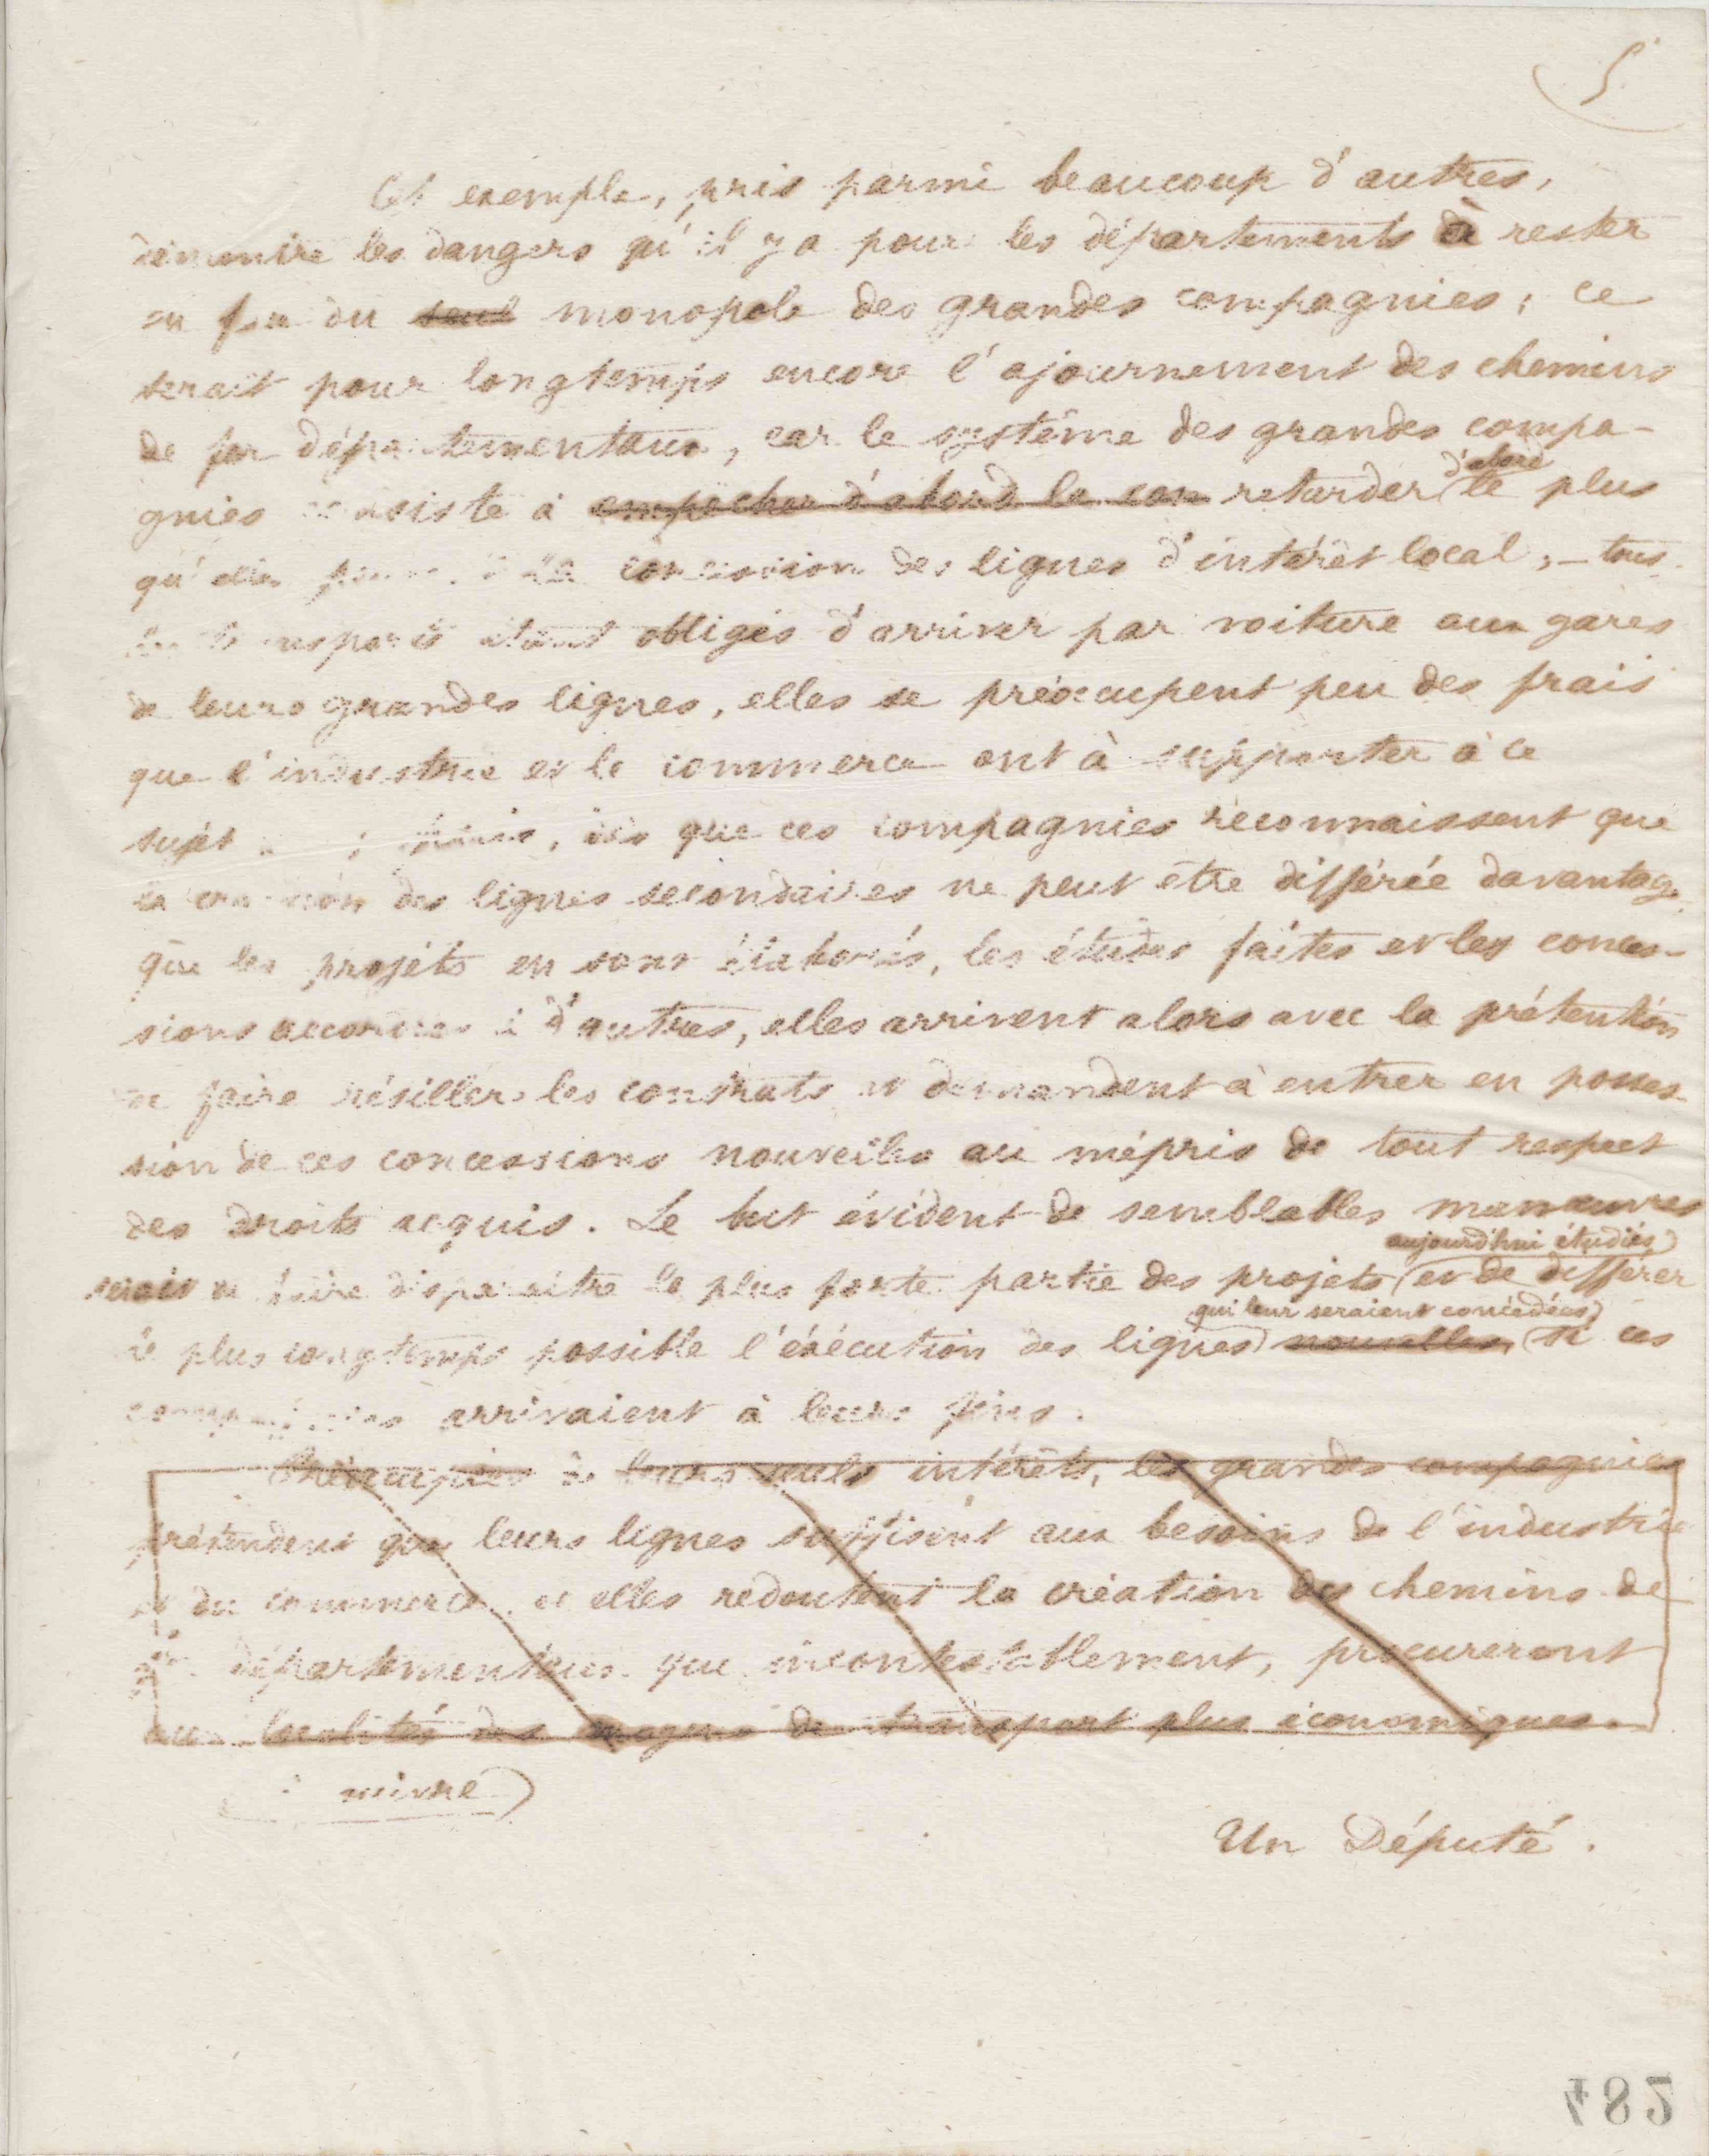 5
Cet exemple, pris parmi beaucoup d'autres,
démontre les dangers qu'il y a pour les départements à rester
du seul monopole des grandes compagnies ; ce
serait pour longtemps encore l'ajournement des chemins
de fer départementaux, car le système des grandes compa-
gnies consiste à empêcher d'abord la con retarder d'abord le plus
qu'elles concession des lignes d'intérêt local, – tous
transports étant obligés d'arriver par voiture aux gares
de leurs grandes lignes, elles se préoccupent peu des frais
que l'industrie et le commerce ont à supporter à ce
sujet , dès que ces compagnies reconnaissent que
la création des lignes secondaires ne peut être différée davantage
que les projets en sont élaborés, les études faites et les conces-
sions accordées à d'autres, elles arrivent alors avec la prétention
de faire résilier les contrats et demandent à entrer en posses-
sion de ces concessions nouvelles au mépris de tout respect
des droits acquis. Le but évident de semblables manœuvres
serait de faire disparaître la plus forte partie des projets aujourd'hui étudiés et de différer
le plus longtemps possible l'éxécution des lignes qui leur seraient concédées nouvelles si ces
compagnies arrivaient à leurs fins.
Préoccupées de leurs seuls intérêts, les grandes compagnies
prétendent que leurs lignes suffisent aux besoins de l'industrie
et du commerce et elles redoutent la création des chemins de
fer départementaux que incontestablement, procureront
aux localités des moyens de transport plus économiques.
à suivre)
Un Député.
482